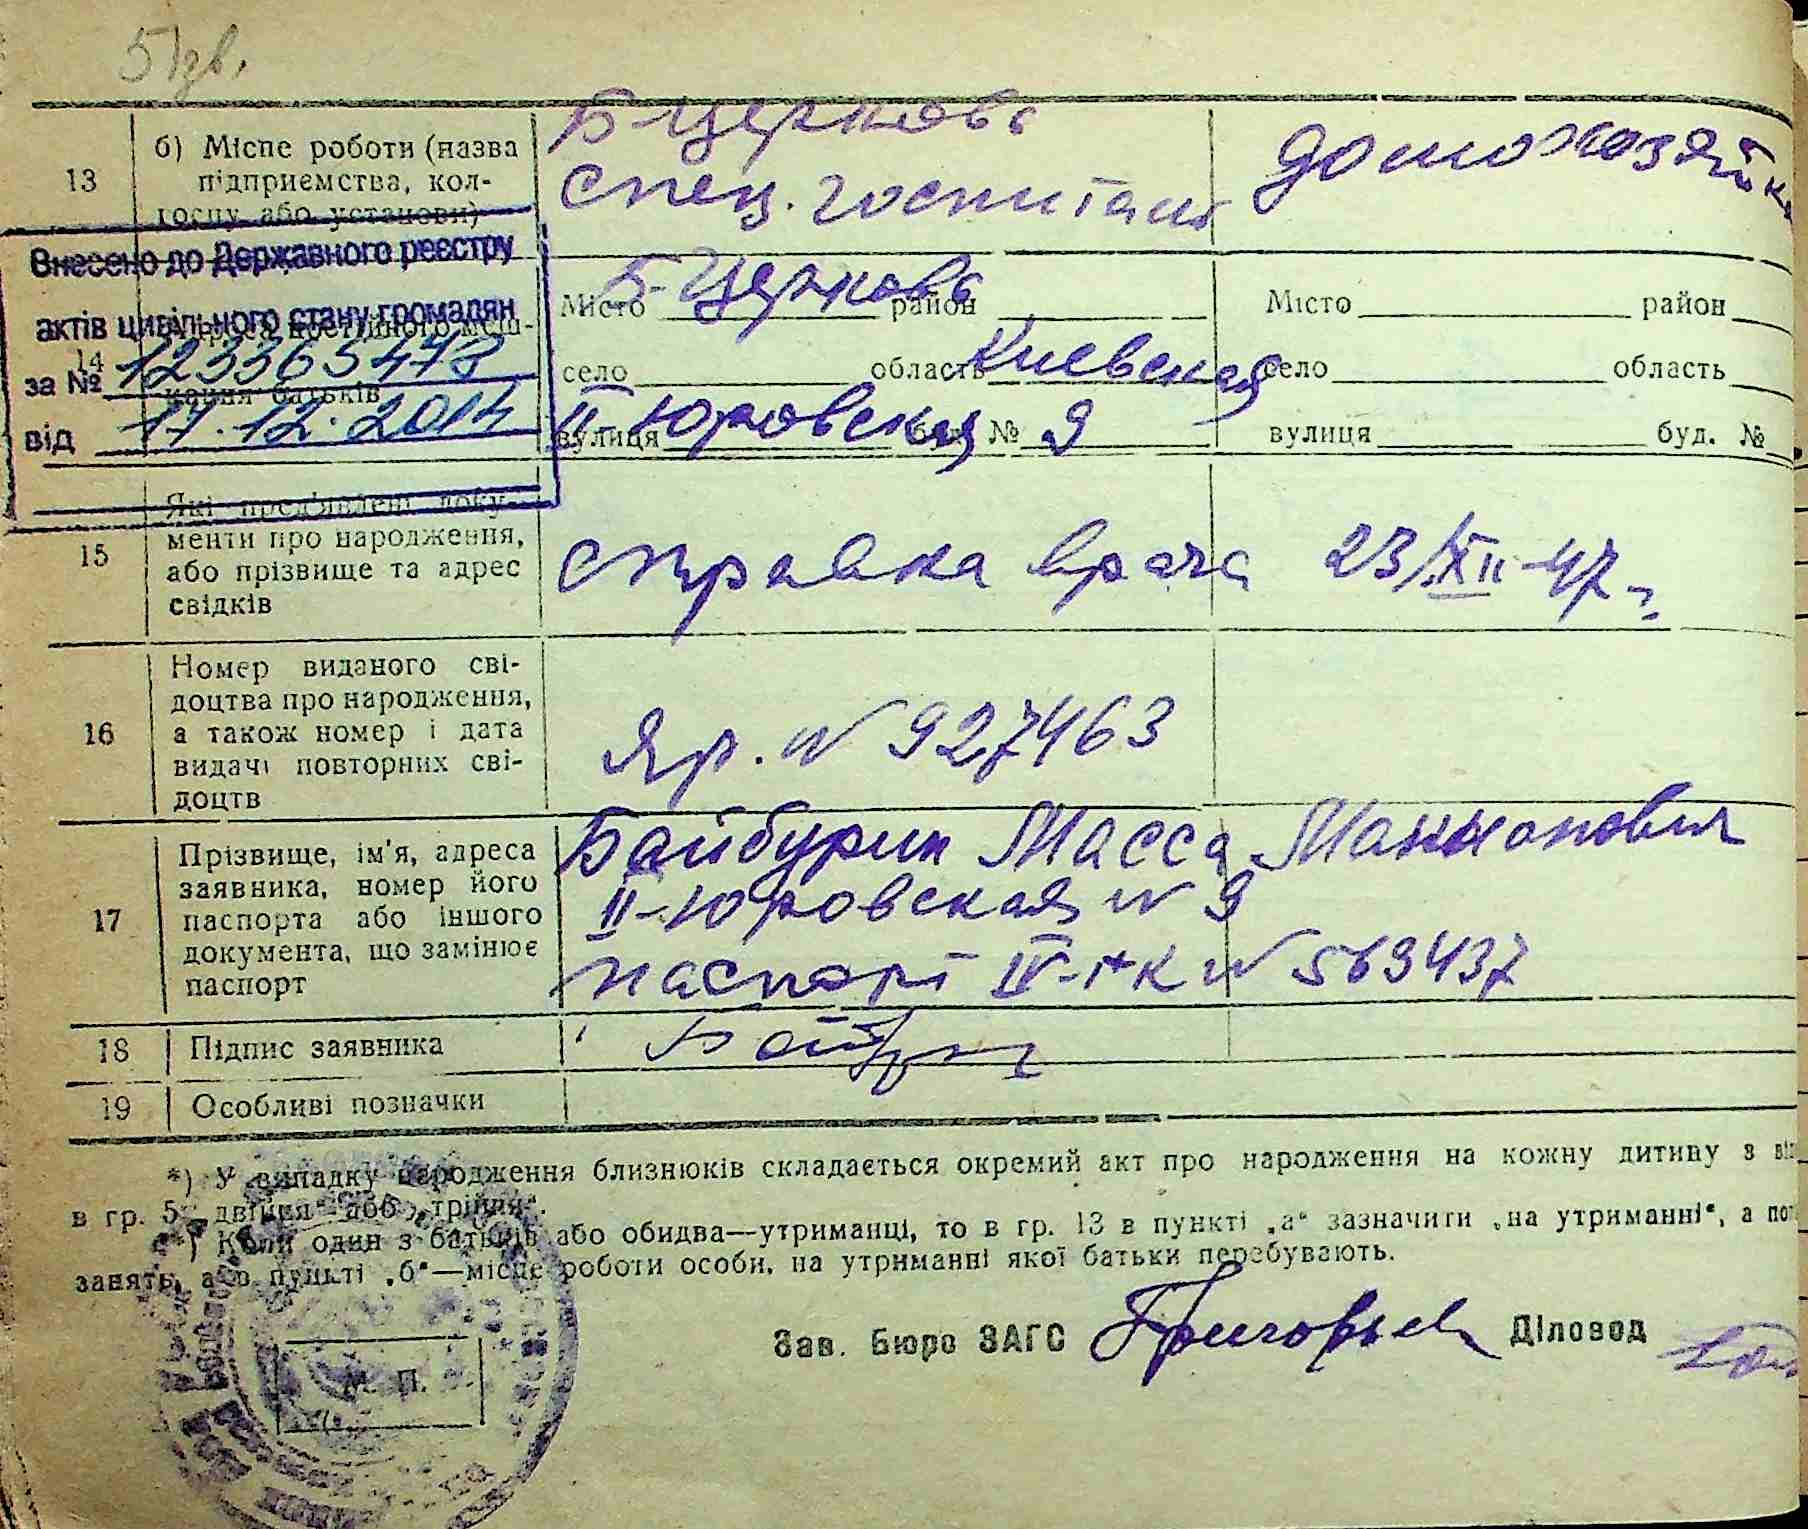 51зв.
13
б) Місце роботи (назва
підприємства, кол-
госпу або установи)
Б-Церковь
спец. госпиталь
домохозяйка
Внесено до Державного реєстру
актів цивільного стану громадян
за № 1233654
від 17.12.2014
14
кання батьків
Місто Б-Церковь район
село область Киевская
вулиця II-Юровская буд. № 9
Місто район
село область
вулиця буд. №
15
Які пред'явлені доку-
менти про народження,
або прізвище та адрес
свідків
справка врача 23/XII-47 г.
16
Номер виданого сві-
доцтва про народження,
а також номер і дата
видачі повторних сві-
доцтв
Яр. № 927463
17
Прізвище, ім'я, адреса
заявника, номер його
паспорта або іншого
документа, що замінює
паспорт
Байбурин Масса
II-Юровская № 9
паспорт IV- № 569437
18 Підпис заявника
19 Особливі позначки
*) У випадку народження близнюків складається окремий акт про народження на кожну дитину з
в гр. 5 „двійня“ або „трійня“.
**) Коли один з батьків або обидва—утриманці, то в гр. 13 в пункті „а“ зазначити „на утриманні“, а
занять, а в пункті „б“—місце роботи особи, на утриманні якої батьки перебувають.
Зав. Бюро ЗАГС Григорьев Діловод
М. П.